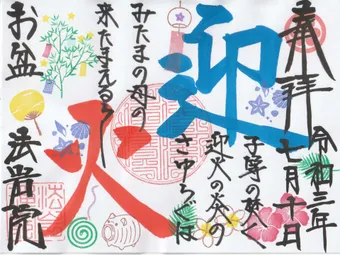 奉拝
令和三年
七月十日
迎火
子等の焚く
迎火の炎の
さゆらぐは
みたまの母の
来たまえるらし
お盆